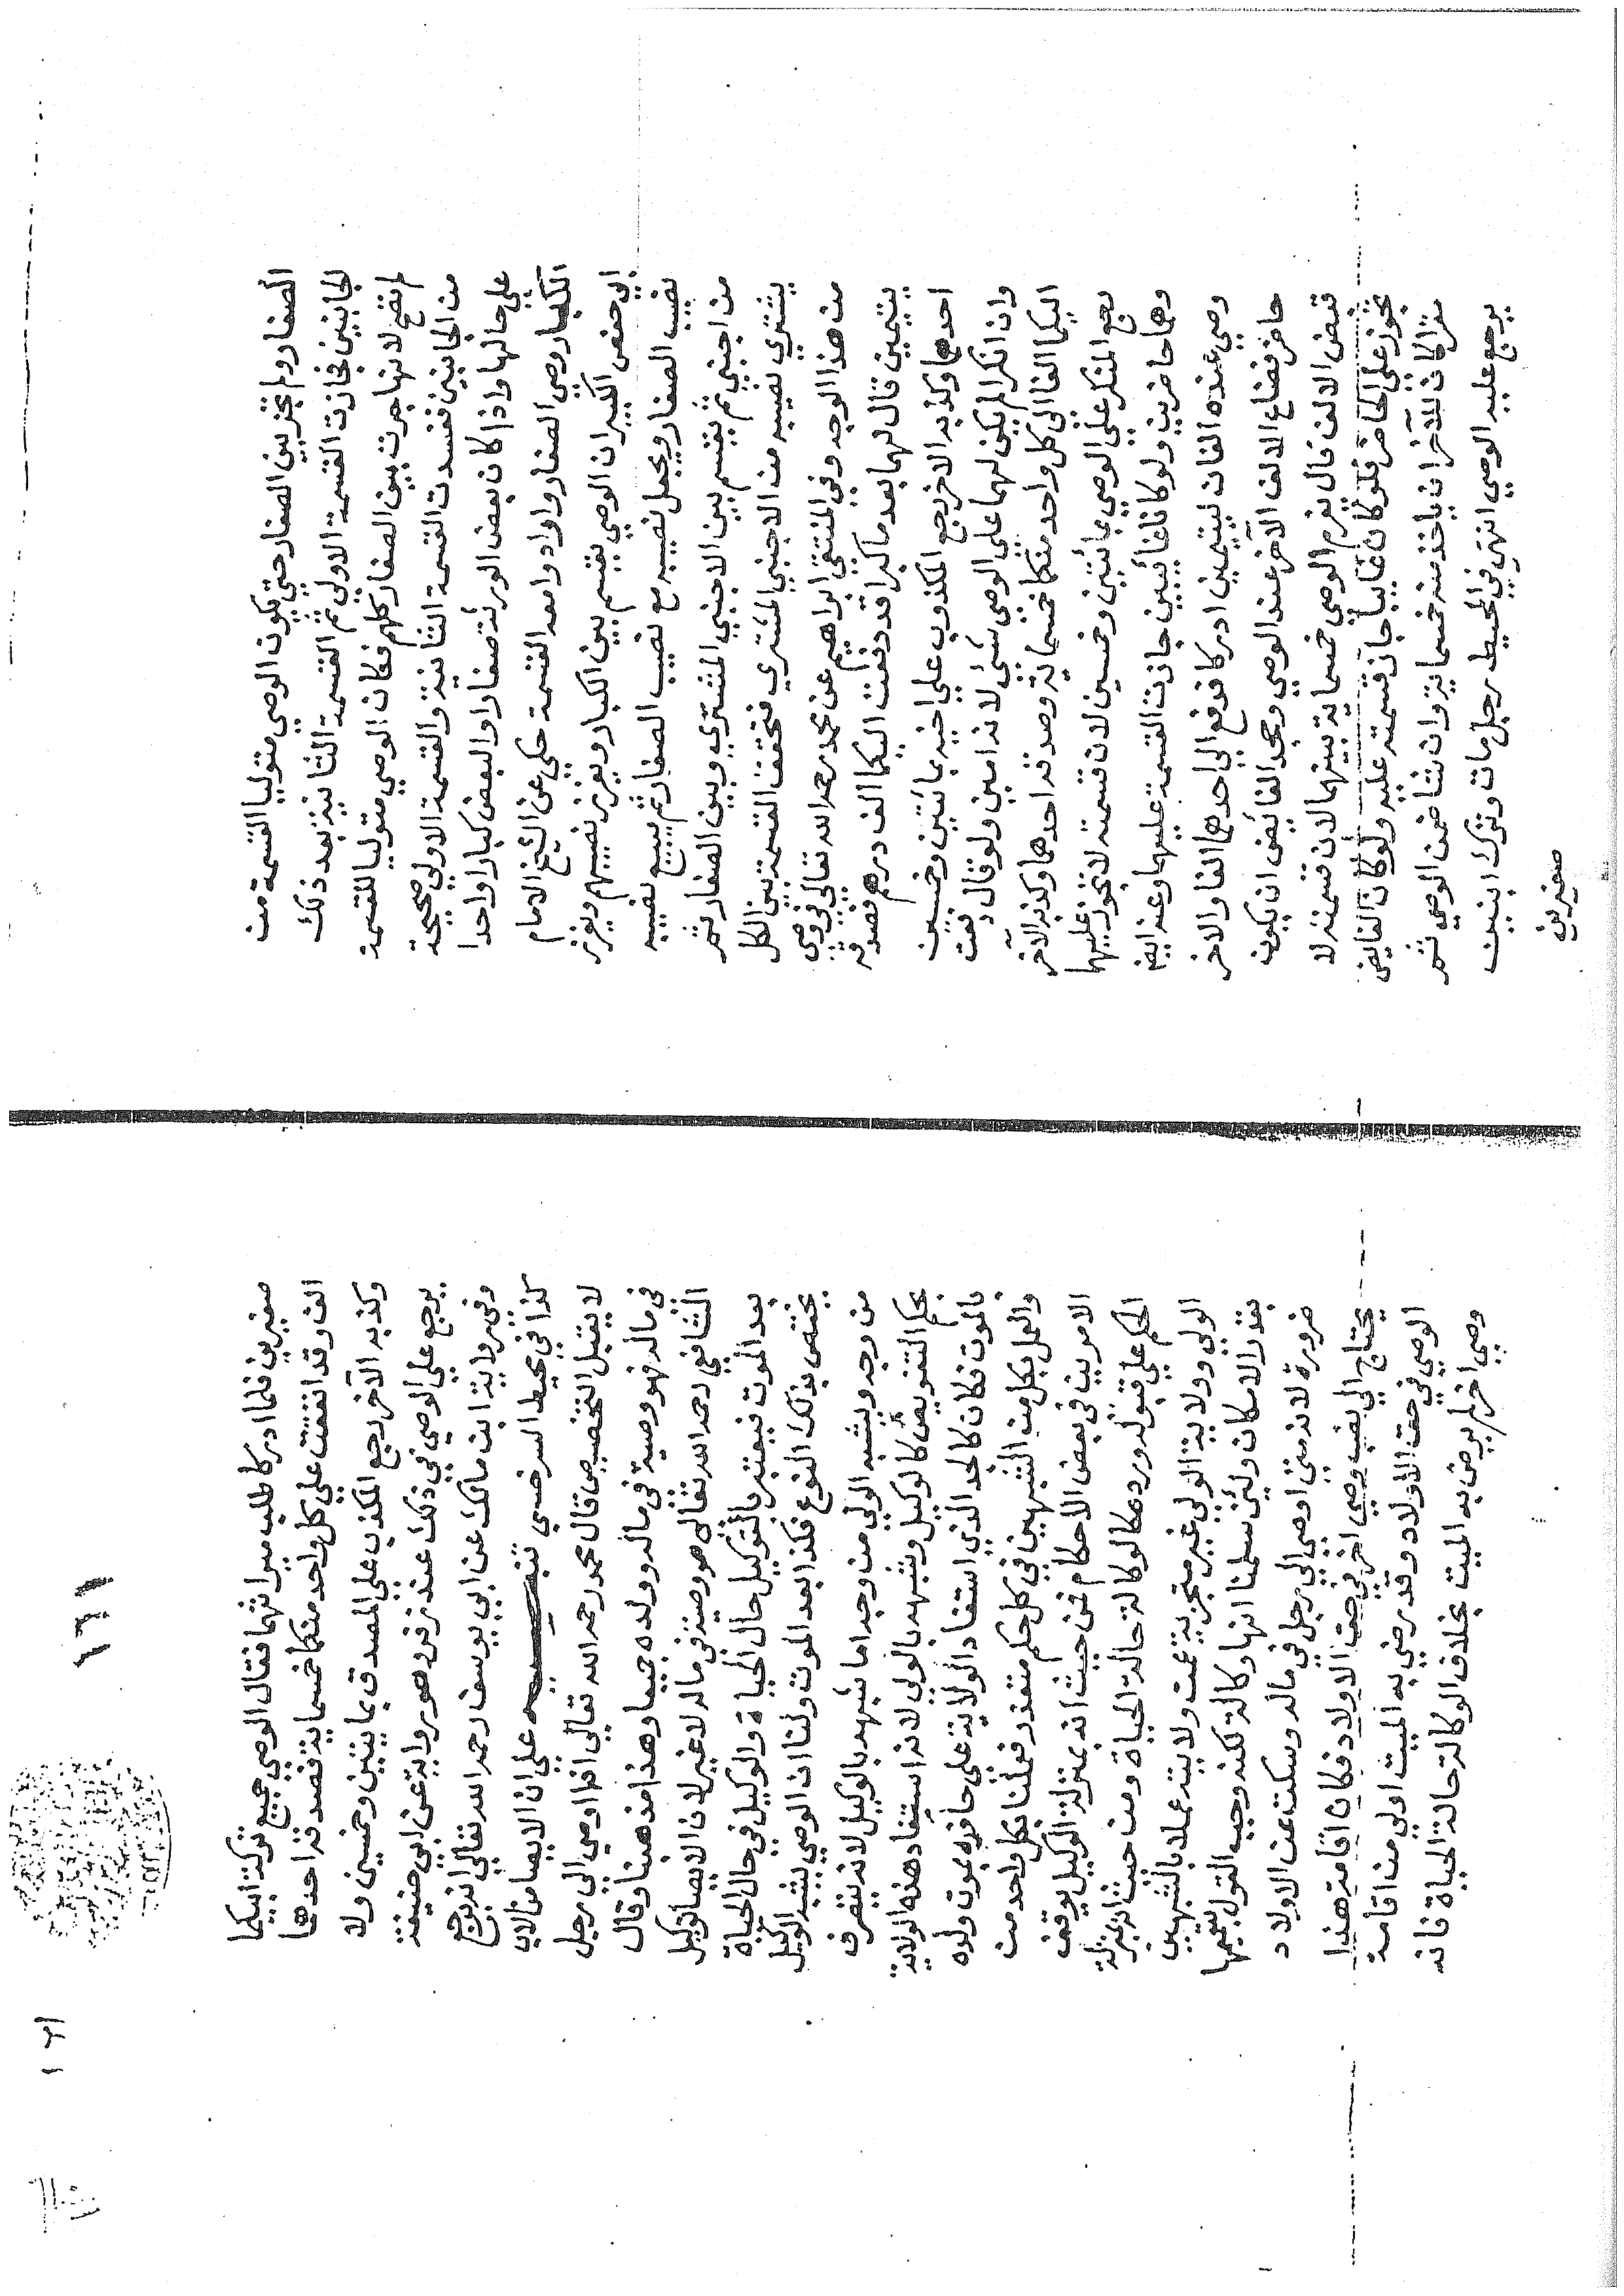 الصغار ولم تجز بين الصغار حتى يكون الوصي متوليا القسمة من
الجانبين فجازت القسمة الاولى ثم القسمة الثانية بعد ذلك
لم تقع لانها جرت بين الصغار كلهم فكان الوصي متوليا للقسمة
من الجانبين ففسدت القسمة الثانية والقسمة الاولى صحيحة
على حالها واذا كان بعض الورثة صغارا والبعض كبارا واحدا
الكبار وصي الصغار وارادوا معه القسمة حكي عن الشيخ الامام
ابي حفص الكبير ان الوصي يقسم بين الكبار ويفرز نصيبهم ويفرز
نصيب الصغار ويجعل نصيبه مع نصيب الصغار ثم يبيع نصيبه
من اجنبي ثم يقسم بين الاجنبي المشتري وبين الصغار ثم
يشتري نصيبه من الاجنبي المشتري فتحقق القسمة بين الكل
من هذا الوجه وفي المنتقى ابراهيم عن محمد رحمه الله تعالى في وصي
يتيمين قال لهما بعد ما كبرا قد دفعت اليكما الف درهم فصدقه
احدهما وكذبه الاخر رجع المكذوب على اخيه بمائتين وخمسين
وان انكرا لم يكن لهما على الوصي شئ لانه امين ولو قال دفعت
اليكما الفا الى كل واحد منكما خمسماية وصدقه احدهما وكذبه الآخر
رجع المنكر على الوصي بمائتين وخمسين لان قسمته لا تجوز عليهما
وهما حاضرين ولو كانا غائبين جازت القسمة عليهما وعنه ايضا
وصي عنده الفان ليتيمين ادركا فدفع الى احدهما الفا والاخر
حاضر فضاع الالف الآخر عند الوصي وجحد القابض ان يكون
قبض الالف قال يغرم الوصي خمسماية بينهما لان قسمته لا
تجوز على الحاضر فلو كان غايبا جاز قسمته عليه ولو كان القابض
مقرا كان للآخر ان ياخذ منه خمسماية وان شا ضمن الوصي ثم
يرجع عليه الوصي انتهى في المحيط رجل مات وترك ابنين
صغيرين
١٦١
١٦١
صغيرين فلما ادركا طلبا ميراثهما فقال الوصي جميع تركة ابيكما
الف وقد انفقت على كل واحد منكما خمسماية فصدقه احدهما
وكذبه الآخر رجع المكذب على المصدق بمايتين وخمسين ولا
يرجع على الوصي في ذلك عند زفر وهو رواية عن ابي حنيفة
وفي رواية ابن مالك عن ابي يوسف رحمه الله تعالى انه لا يرجع
كذا في محيط السرخسي تنبيه على ان الايصا من الاب
لا يقبل التخصيص قال محمد رحمه الله تعالى اذا اوصى الى رجل
في ماله فهو وصية في ماله وولده جميعا وهذا مذهبنا وقال
الشافعي رحمه الله تعالى هو وصية في ماله لا غير لان الايصا توكيل
بعد الموت فيعتبر بالتوكيل حال الحياة والوكيل في حال الحياة
يختص بذلك النوع فكذا بعد الموت ولنا ان الوصي يشبه الوكيل
من وجه ويشبه الولي من وجه اما شبهه بالوكيل لانه يتصرف
بحكم التفويض كالوكيل وشبهه بالولي لانه استفاد هذه الولاية
بالموت فكان كالجد الذي استفاد الولاية على حافده بموت ولده
والعمل بكل من الشبهين في كل حكم متعذر فعملنا بكل واحد من
الامرين في بعض الاحكام فمن حيث انه بمنزلة الوكيل يوقف
الحكم على قبوله ورده كالوكالة حالة الحياة ومن حيث انه بمنزلة
الولي وولاية الولي غير متجزية عمت ولايته عملا بالشبهين
بقدر الامكان ولئن سلمنا انها وكالة لكنه وجب القول بتعميمها
ضرورة لانه متى اوصى الى رجل في ماله وسكت عن الاولاد
يحتاج الى نصب وصي اخر في حق الاولاد فكان اقامة هذا
الوصي في حق الاولاد وقد رضي به الميت اولى من اقامة
وصي اخر لم يرض به الميت بخلاف الوكالة حالة الحياة فانه